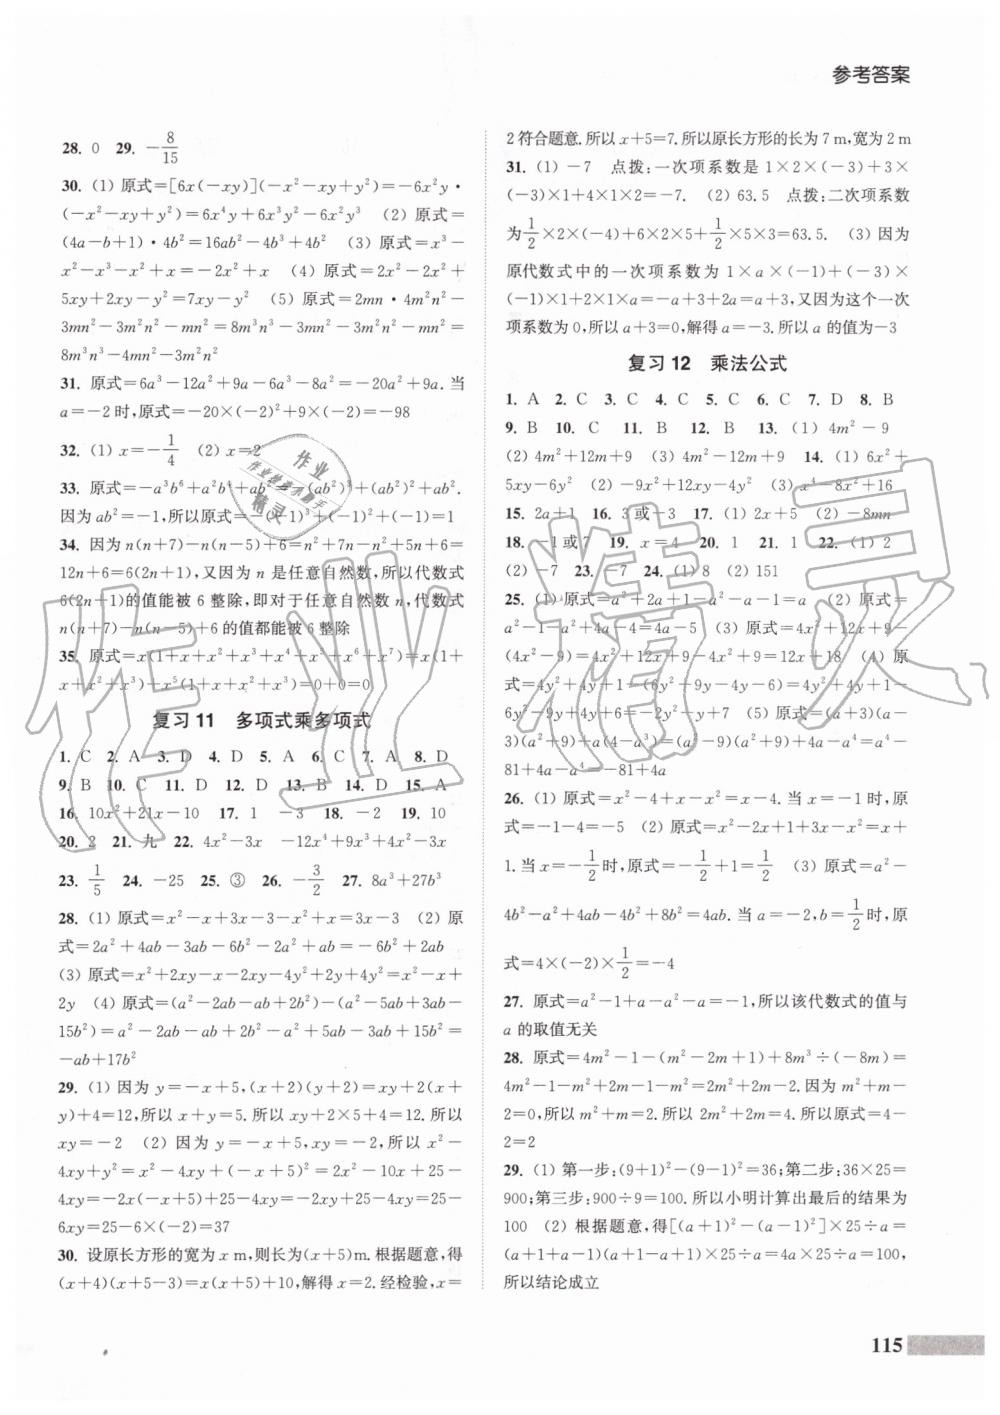 参考答案
28. 0 29. －8/15
30. (1) 原式＝[6x(－xy)](－x²－xy＋y²)＝－6x²y·
(－x²－xy＋y²)＝6x⁴y＋6x³y²－6x²y³ (2) 原式＝
(4a－b＋1)·4b²＝16ab²－4b³＋4b² (3) 原式＝x³－
x²－x³－x²＋x＝－2x²＋x (4) 原式＝2x²－2x²＋
5xy＋2xy－y²＝7xy－y² (5) 原式＝2mn·4m²n²－
3mn²－3m²n²－mn²＝8m³n³－3mn²－3m²n²－mn²＝
8m³n³－4mn²－3m²n²
31. 原式＝6a³－12a²＋9a－6a³－8a²＝－20a²＋9a. 当
a＝－2时,原式＝－20×(－2)²＋9×(－2)＝－98
32. (1) x＝－1/4 (2) x＝2
33. 原式＝－a³b⁶＋a²b⁴＋ab²＝－(ab²)³＋(ab²)²＋ab².
因为ab²＝－1,所以原式＝－(－1)³＋(－1)²＋(－1)＝1
34. 因为n(n＋7)－n(n－5)＋6＝n²＋7n－n²＋5n＋6＝
12n＋6＝6(2n＋1),又因为 n 是任意自然数,所以代数式
6(2n＋1)的值能被 6 整除,即对于任意自然数 n,代数式
n(n＋7)－n(n－5)＋6 的值都能被 6 整除
35. 原式＝x(1＋x＋x²＋x³＋x⁴＋x⁵＋x⁶＋x⁷)＝x(1＋
x＋x²＋x³)＋x⁵(1＋x＋x²＋x³)＝0＋0＝0
复习 11 多项式乘多项式
1. C 2. A 3. D 4. D 5. A 6. C 7. A 8. D
9. B 10. C 11. D 12. D 13. B 14. D 15. A
16. 10x²＋21x－10 17. 1 －3 18. －2 19. 10
20. 2 21. 九 22. 4x²－3x －12x⁴＋9x³＋4x²－3x
23. 1/5 24. －25 25. ③ 26. －3/2 27. 8a³＋27b³
28. (1) 原式＝x²－x＋3x－3－x²＋x＝3x－3 (2) 原
式＝2a²＋4ab－3ab－6b²－2a²＋ab＝－6b²＋2ab
(3) 原式＝x²＋2xy－x－2xy－4y²＋2y＋4y²＝x²－x＋
2y (4) 原式＝(a²－2ab－ab＋2b²)－(a²－5ab＋3ab－
15b²)＝a²－2ab－ab＋2b²－a²＋5ab－3ab＋15b²＝
－ab＋17b²
29. (1) 因为 y＝－x＋5,(x＋2)(y＋2)＝xy＋2(x＋
y)＋4＝12,所以 x＋y＝5. 所以 xy＋2×5＋4＝12. 所以
xy＝－2 (2) 因为 y＝－x＋5,xy＝－2,所以 x²－
4xy＋y²＝x²－4xy＋(－x＋5)²＝2x²－10x＋25－
4xy＝－2x(－x＋5)＋25－4xy＝－2xy－4xy＋25＝
－6xy＝25－6×(－2)＝37
30. 设原长方形的宽为x m,则长为(x＋5)m.根据题意,得
(x＋4)(x＋5－3)＝x(x＋5)＋10,解得x＝2.经检验,x＝
2符合题意.所以x＋5＝7.所以原长方形的长为 7 m,宽为 2 m
31. (1) －7 点拨:一次项系数是 1×2×(－3)＋3×
(－3)×1＋4×1×2＝－7. (2) 63.5 点拨:二次项系数
为1/2×2×(－4)＋6×2×5＋1/2×5×3＝63.5. (3) 因为
原代数式中的一次项系数为 1×a×(－1)＋(－3)×
(－1)×1＋2×1×a＝－a＋3＋2a＝a＋3,又因为这个一次
项系数为0,所以a＋3＝0,解得a＝－3.所以a的值为－3
复习 12 乘法公式
1. A 2. C 3. C 4. C 5. C 6. C 7. D 8. B
9. B 10. C 11. B 12. B 13. (1) 4m²－9
(2) 4m²＋12m＋9 (3) 4m²－12m＋9 14. (1) 6x²＋
5xy－6y² (2) －9x²＋12xy－4y² (3) x⁴－8x²＋16
15. 2a＋1 16. 3或－3 17. (1) 2x＋5 (2) －8mn
18. －1或7 19. x＝4 20. 1 21. 1 22. (1) 2
(2) －7 23. －7 24. (1) 8 (2) 151
25. (1) 原式＝a²＋2a＋1－a²－a－1＝a (2) 原式＝
a²－1－a²＋4a－4＝4a－5 (3) 原式＝4x²＋12x＋9－
(4x²－9)＝4x²＋12x＋9－4x²＋9＝12x＋18 (4) 原
式＝4y²＋4y＋1－(6y²＋9y－4y－6)＝4y²＋4y＋1－
6y²－9y＋4y＋6＝－2y²－y＋7 (5) 原式＝(a＋3)(a－
3)(a²＋9)＋a(4－a³)＝(a²－9)(a²＋9)＋4a－a⁴＝a⁴－
81＋4a－a⁴＝－81＋4a
26. (1) 原式＝x²－4＋x－x²＝x－4. 当 x＝－1 时,原
式＝－1－4＝－5 (2) 原式＝x²＋1＋3x－x²－2x＝x＋
1.当x＝－1/2时,原式＝－1/2＋1＝1/2 (3) 原式＝a²－
4b²－a²＋4ab－4b²＋8b²＝4ab. 当 a＝－2,b＝1/2时,原
式＝4×(－2)×1/2＝－4
27. 原式＝a²－1＋a－a²－a＝－1,所以该代数式的值与
a 的取值无关
28. 原式＝4m²－1－(m²－2m＋1)＋8m³÷(－8m)＝
4m²－1－m²＋2m－1－m²＝2m²＋2m－2. 因为 m²＋m－
2＝0,所以 m²＋m＝2. 所以 2m²＋2m＝4. 所以原式＝4－
2＝2
29. (1) 第一步:(9＋1)²－(9－1)²＝36;第二步:36×25＝
900;第三步:900÷9＝100. 所以小明计算出最后的结果为
100 (2) 根据题意,得[(a＋1)²－(a－1)²]×25÷a＝
(a＋1＋a－1)(a＋1－a＋1)×25÷a＝4a×25÷a＝100,
所以结论成立
115
作业精灵